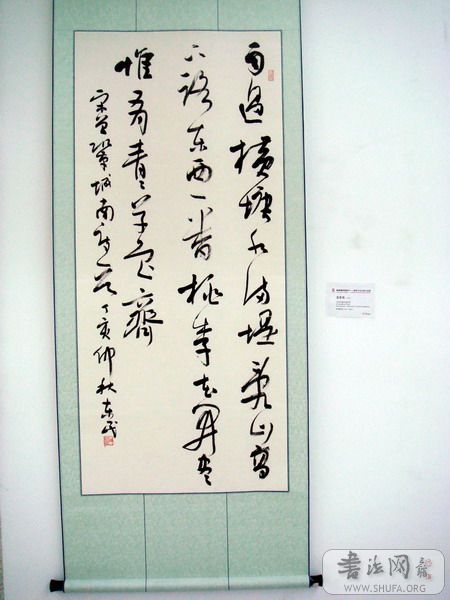 雨過橫塘水满堤乱山高
下路东西一番桃李花開尽
惟有青青草色齊
宋曾鞏城南丁亥仲秋
書法网
WWW.SHUFA.ORG